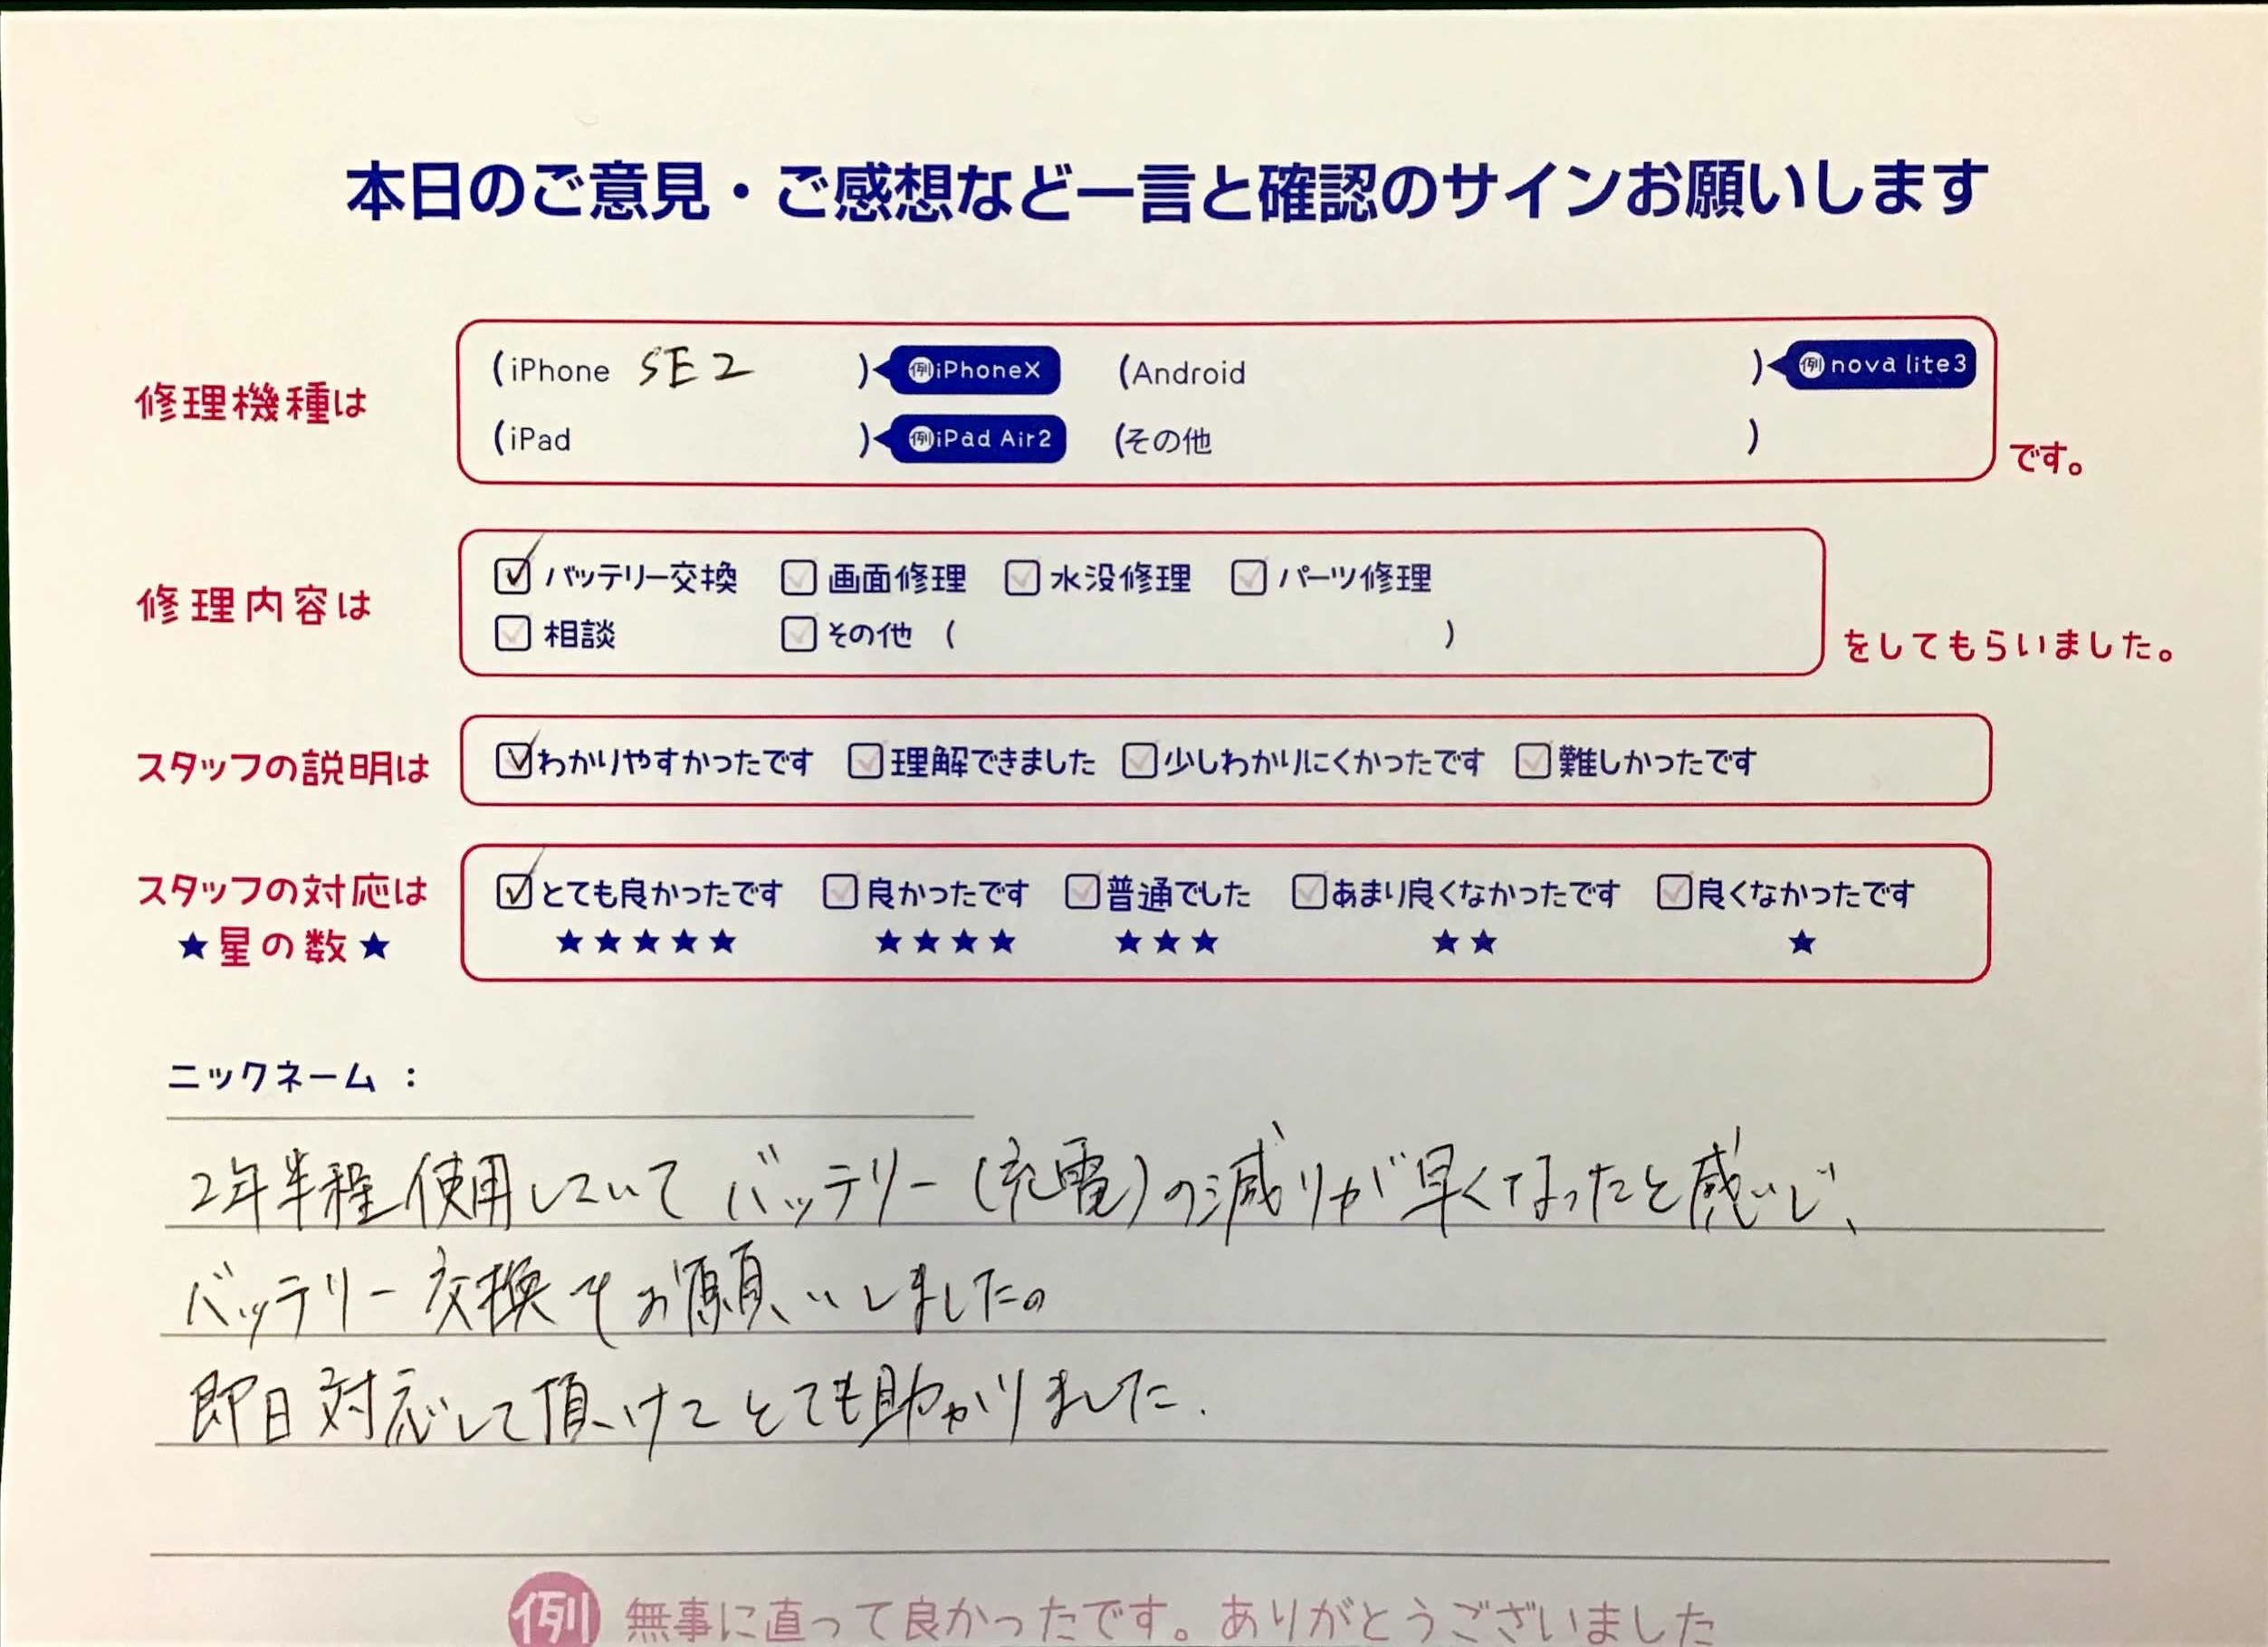 本日のご意見・ご感想など一言と確認のサインお願いします
修理機種は
(iPhone SE2 ) 例iPhoneX (Android ) 例nova lite3
(iPad ) 例iPad Air2 (その他 )
です。
修理内容は
バッテリー交換 画面修理 水没修理 パーツ修理
相談 その他 ( )
をしてもらいました。
スタッフの説明は
わかりやすかったです 理解できました 少しわかりにくかったです 難しかったです
スタッフの対応は
★星の数★
とても良かったです 良かったです 普通でした あまり良くなかったです 良くなかったです
★★★★★ ★★★★ ★★★ ★★ ★
ニックネーム :
2年半程使用していてバッテリー(充電)の減りが早くなったと感いじ、
バッテリー交換をお願いしました。
即日対応して頂けてとても助かりました.
例 無事に直って良かったです。ありがとうございました